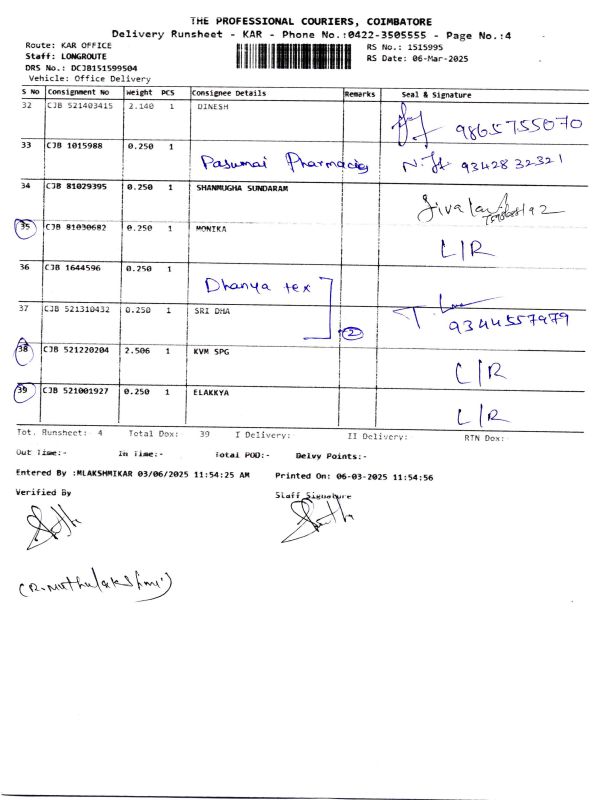 THE PROFESSIONAL COURIERS, COIMBATORE
Delivery Runsheet - KAR - Phone No.:0422-3505555 - Page No.:4
Route: KAR OFFICE
RS No.: 1515995
Staff: LONGROUTE
RS Date: 06-Mar-2025
DRS No.: DCJB151599504
Vehicle: Office Delivery
S No Consignment No Weight PCS Consignee Details Remarks Seal & Signature
32 CJB 521403415 2.140 1 DINESH
9865755070
33 CJB 1015988 0.250 1 Pasumai Pharmacies 9342832321
34 CJB 81029395 0.250 1 SHANMUGHA SUNDARAM
35 CJB 81030682 0.250 1 MONIKA L/R
36 CJB 1644596 0.250 1 Dhanya tex
37 CJB 521310432 0.250 1 SRI DHA 2 9344557979
38 CJB 521220204 2.506 1 KVM SPG L/R
39 CJB 521001927 0.250 1 ELAKKYA L/R
Tot. Runsheet:- 4 Total Dox: 39 I Delivery:- II Delivery:- RTN Dox:-
Out Time:- In Time:- Total POD:- Delvy Points:-
Entered By :MLAKSHMIKAR 03/06/2025 11:54:25 AM Printed On: 06-03-2025 11:54:56
Verified By Staff Signature
(R. Muthulakshmi)